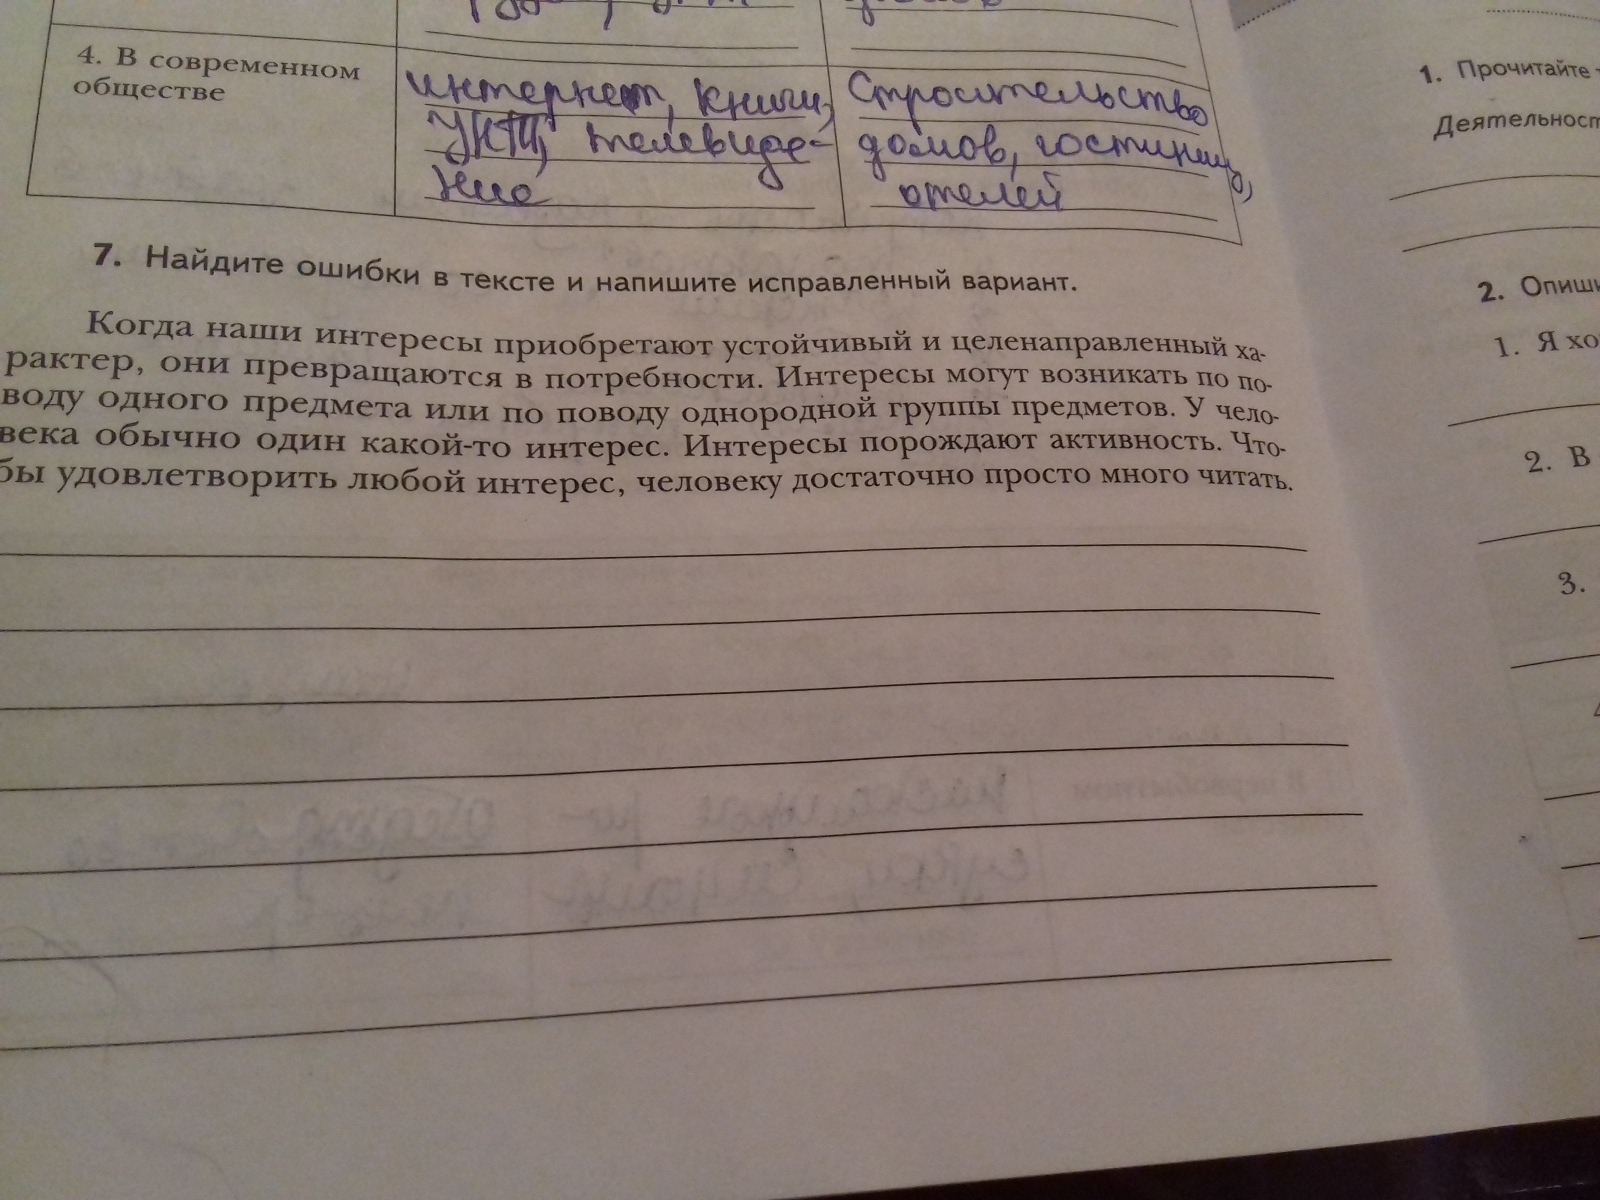 4. В современном
обществе
интернет, книги,
телевиде-
ние
Строительство
домов, гостиниц,
отелей
7. Найдите ошибки в тексте и напишите исправленный вариант.
Когда наши интересы приобретают устойчивый и целенаправленный ха-
рактер, они превращаются в потребности. Интересы могут возникать по по-
воду одного предмета или по поводу однородной группы предметов. У чело-
века обычно один какой-то интерес. Интересы порождают активность. Что-
бы удовлетворить любой интерес, человеку достаточно просто много читать.
1. Прочитайте
Деятельност
2. Опиши
1. Я хо
2. В
3.